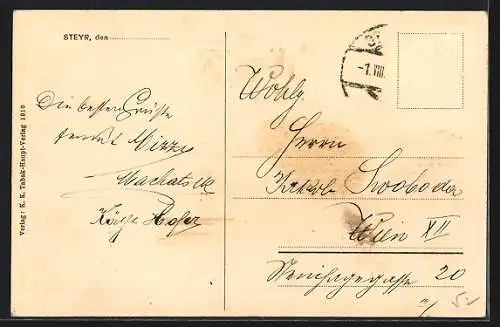 STEYR, den
Die besten Grüße
sendet Mizzi
Käthe Hofer
Verlag: K. K. Tabak-Haupt-Verlag 1910
-1. VIII.
Wohlg.
Herrn
Swoboda
Wien XII
20
5.-